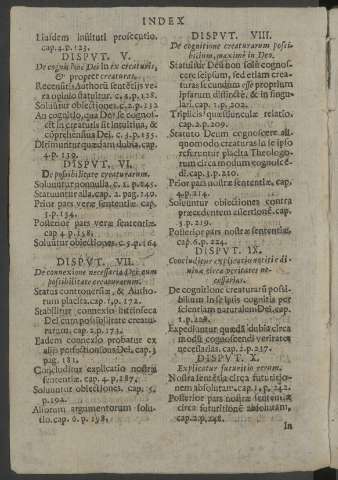 INDEX
Eiusdem instituti prosecutio.
cap. 4. p. 123.
DISPVT. V.
De cognitione Dei in ex creaturis,
& propter creaturas.
Recensita Authorū sententijs ve-
ra opinio statuitur. c. 1. p. 128.
Soluūtur obiectiones. c. 2. p. 132
An cognitio, qua Deꝰ se cognos-
cit in creaturis sit intuitiua, &
cōprehensiua Dei. c. 3. p. 135.
Dirimuntur quædam dubia. cap.
4. p. 139.
DISPVT. VI.
De possibilitate creaturarum.
Soluūtur nonnulla. c. 1. p. 245.
Statuuntur alia. cap. 2. pag. 149.
Prior pars veræ sententiæ. cap.
3. p. 154.
Posterior pars veræ sententiæ.
cap. 4. p. 158.
Soluūtur obiectiones. c. 5. p. 164
DISPVT. VII.
De connexione necessaria Dei cum
possibilitate creaturarum.
Status controuersiæ, & Autho-
rum placita. cap. 1. p. 172.
Stabilitur connexio intrinseca
Dei cum possibilitate creatu-
rarum. cap. 2. p. 173.
Eadem connexio probatur ex
alijs perfectionibus Dei. cap. 3
pag. 181.
Concluditur explicatio nostræ
sententiæ. cap. 4. p. 187.
Soluuntur obiectiones. cap. 5.
p. 192.
Aliorum argumentorum solu-
tio. cap. 6. p. 198.
DISPVT. VIII.
De cognitione creaturarum possi-
bilium, maximè in Deo.
Statuitur Deū non solū cognos-
cere seipsum, sed etiam crea-
turas secundum esse proprium
ipsarum distinctè, & in singu-
lari. cap. 1. p. 202.
Triplicis quæstiunculæ relatio.
cap. 2. p. 209.
Statuto Deum cognoscere ali-
quomodo creaturas in se ipso
referuntur placita Theologo-
rum circa modum cognoscē-
di. cap. 3. p. 210.
Prior pars nostræ sententiæ. cap.
4. p. 214.
Soluuntur obiectiones contra
præcedentem assertionē. cap.
5. p. 219.
Posterior pars nostræ sententiæ.
cap. 6. p. 224.
DISPVT. IX.
Concluditur explicatio notitiæ di-
uinæ circa veritates ne-
cessarias.
De cognitione creaturarū possi-
bilium in se ipsis cognitis per
scientiam naturalem Dei. cap.
1. p. 228.
Expediuntur quædā dubia circa
modū cognoscendi veritates
necessarias. cap. 2. p. 237.
DISPVT. X.
Explicatur futuritio rerum.
Nostra sentētia circa futuritio-
nem absolutam. cap. 1. p. 242.
Posterior pars nostræ sententiæ
circa futuritionē absolutam.
cap. 2. p. 248.
In